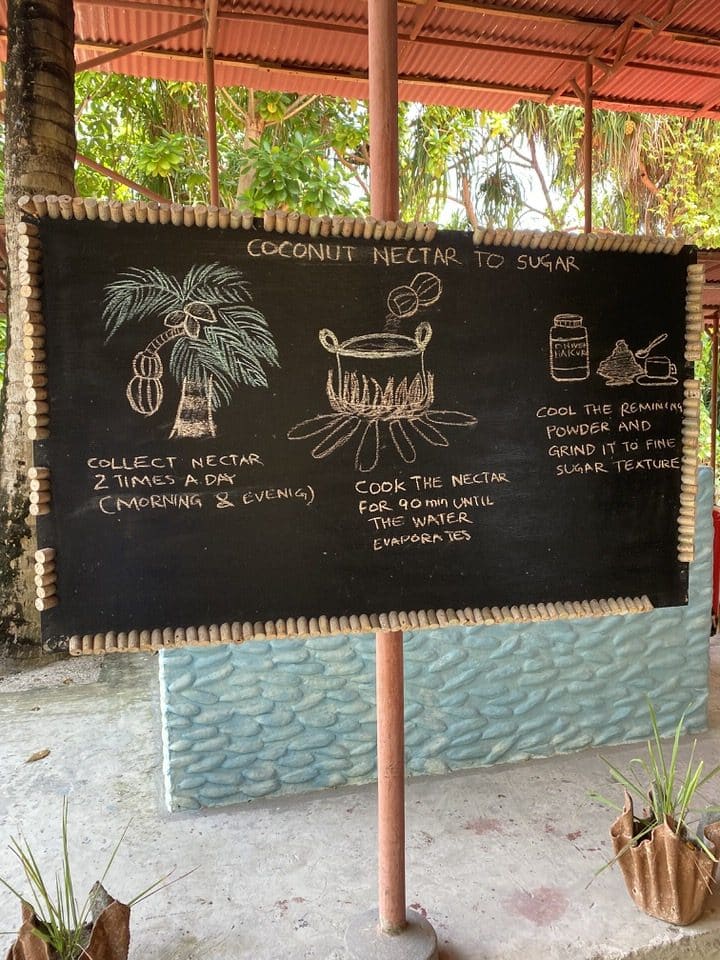 COCONUT NECTAR TO SUGAR
COLLECT NECTAR
2 TIMES A DAY
(MORNING & EVENIG)
COOK THE NECTAR
FOR 90 min UNTIL
THE WATER
EVAPORATES
COOL THE REMINING
POWDER AND
GRIND IT TO FINE
SUGAR TEXTURE